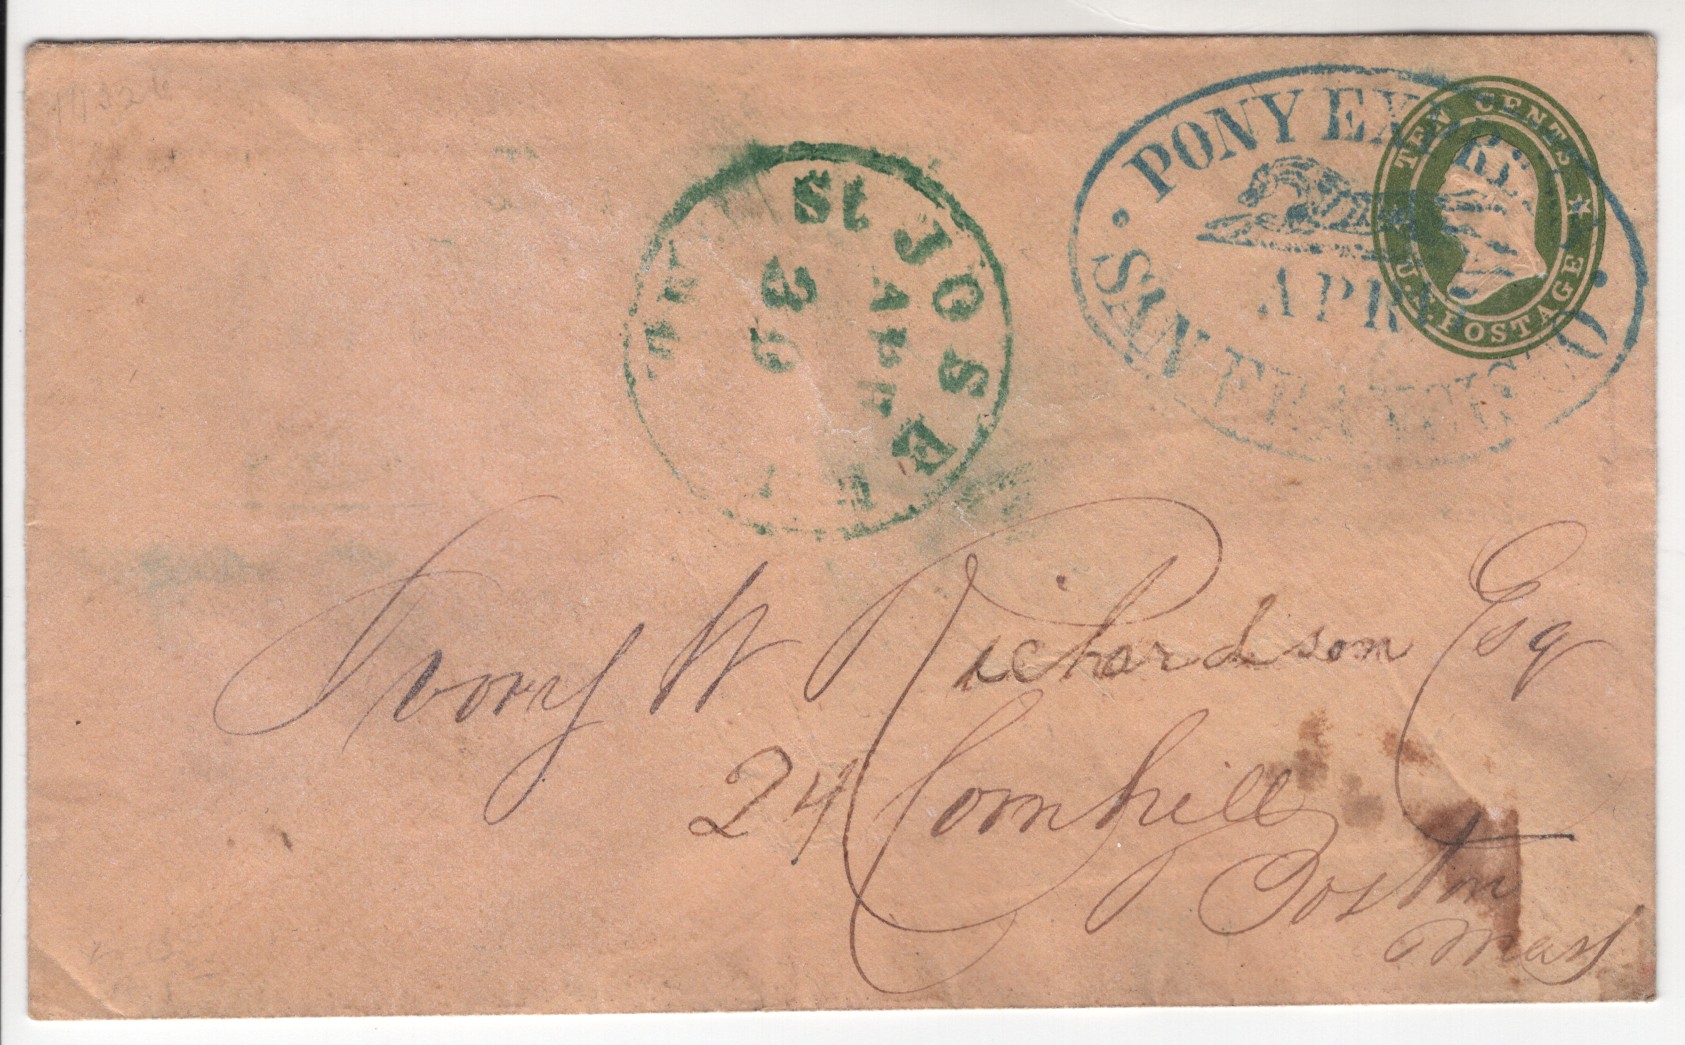 PONY EXPRESS
APR
SAN FRANCISCO
TEN CENTS
U.S. POSTAGE
St JOSEPH
APR
30
Ivory W Richardson Esq
24 Cornhill
Boston
Mass